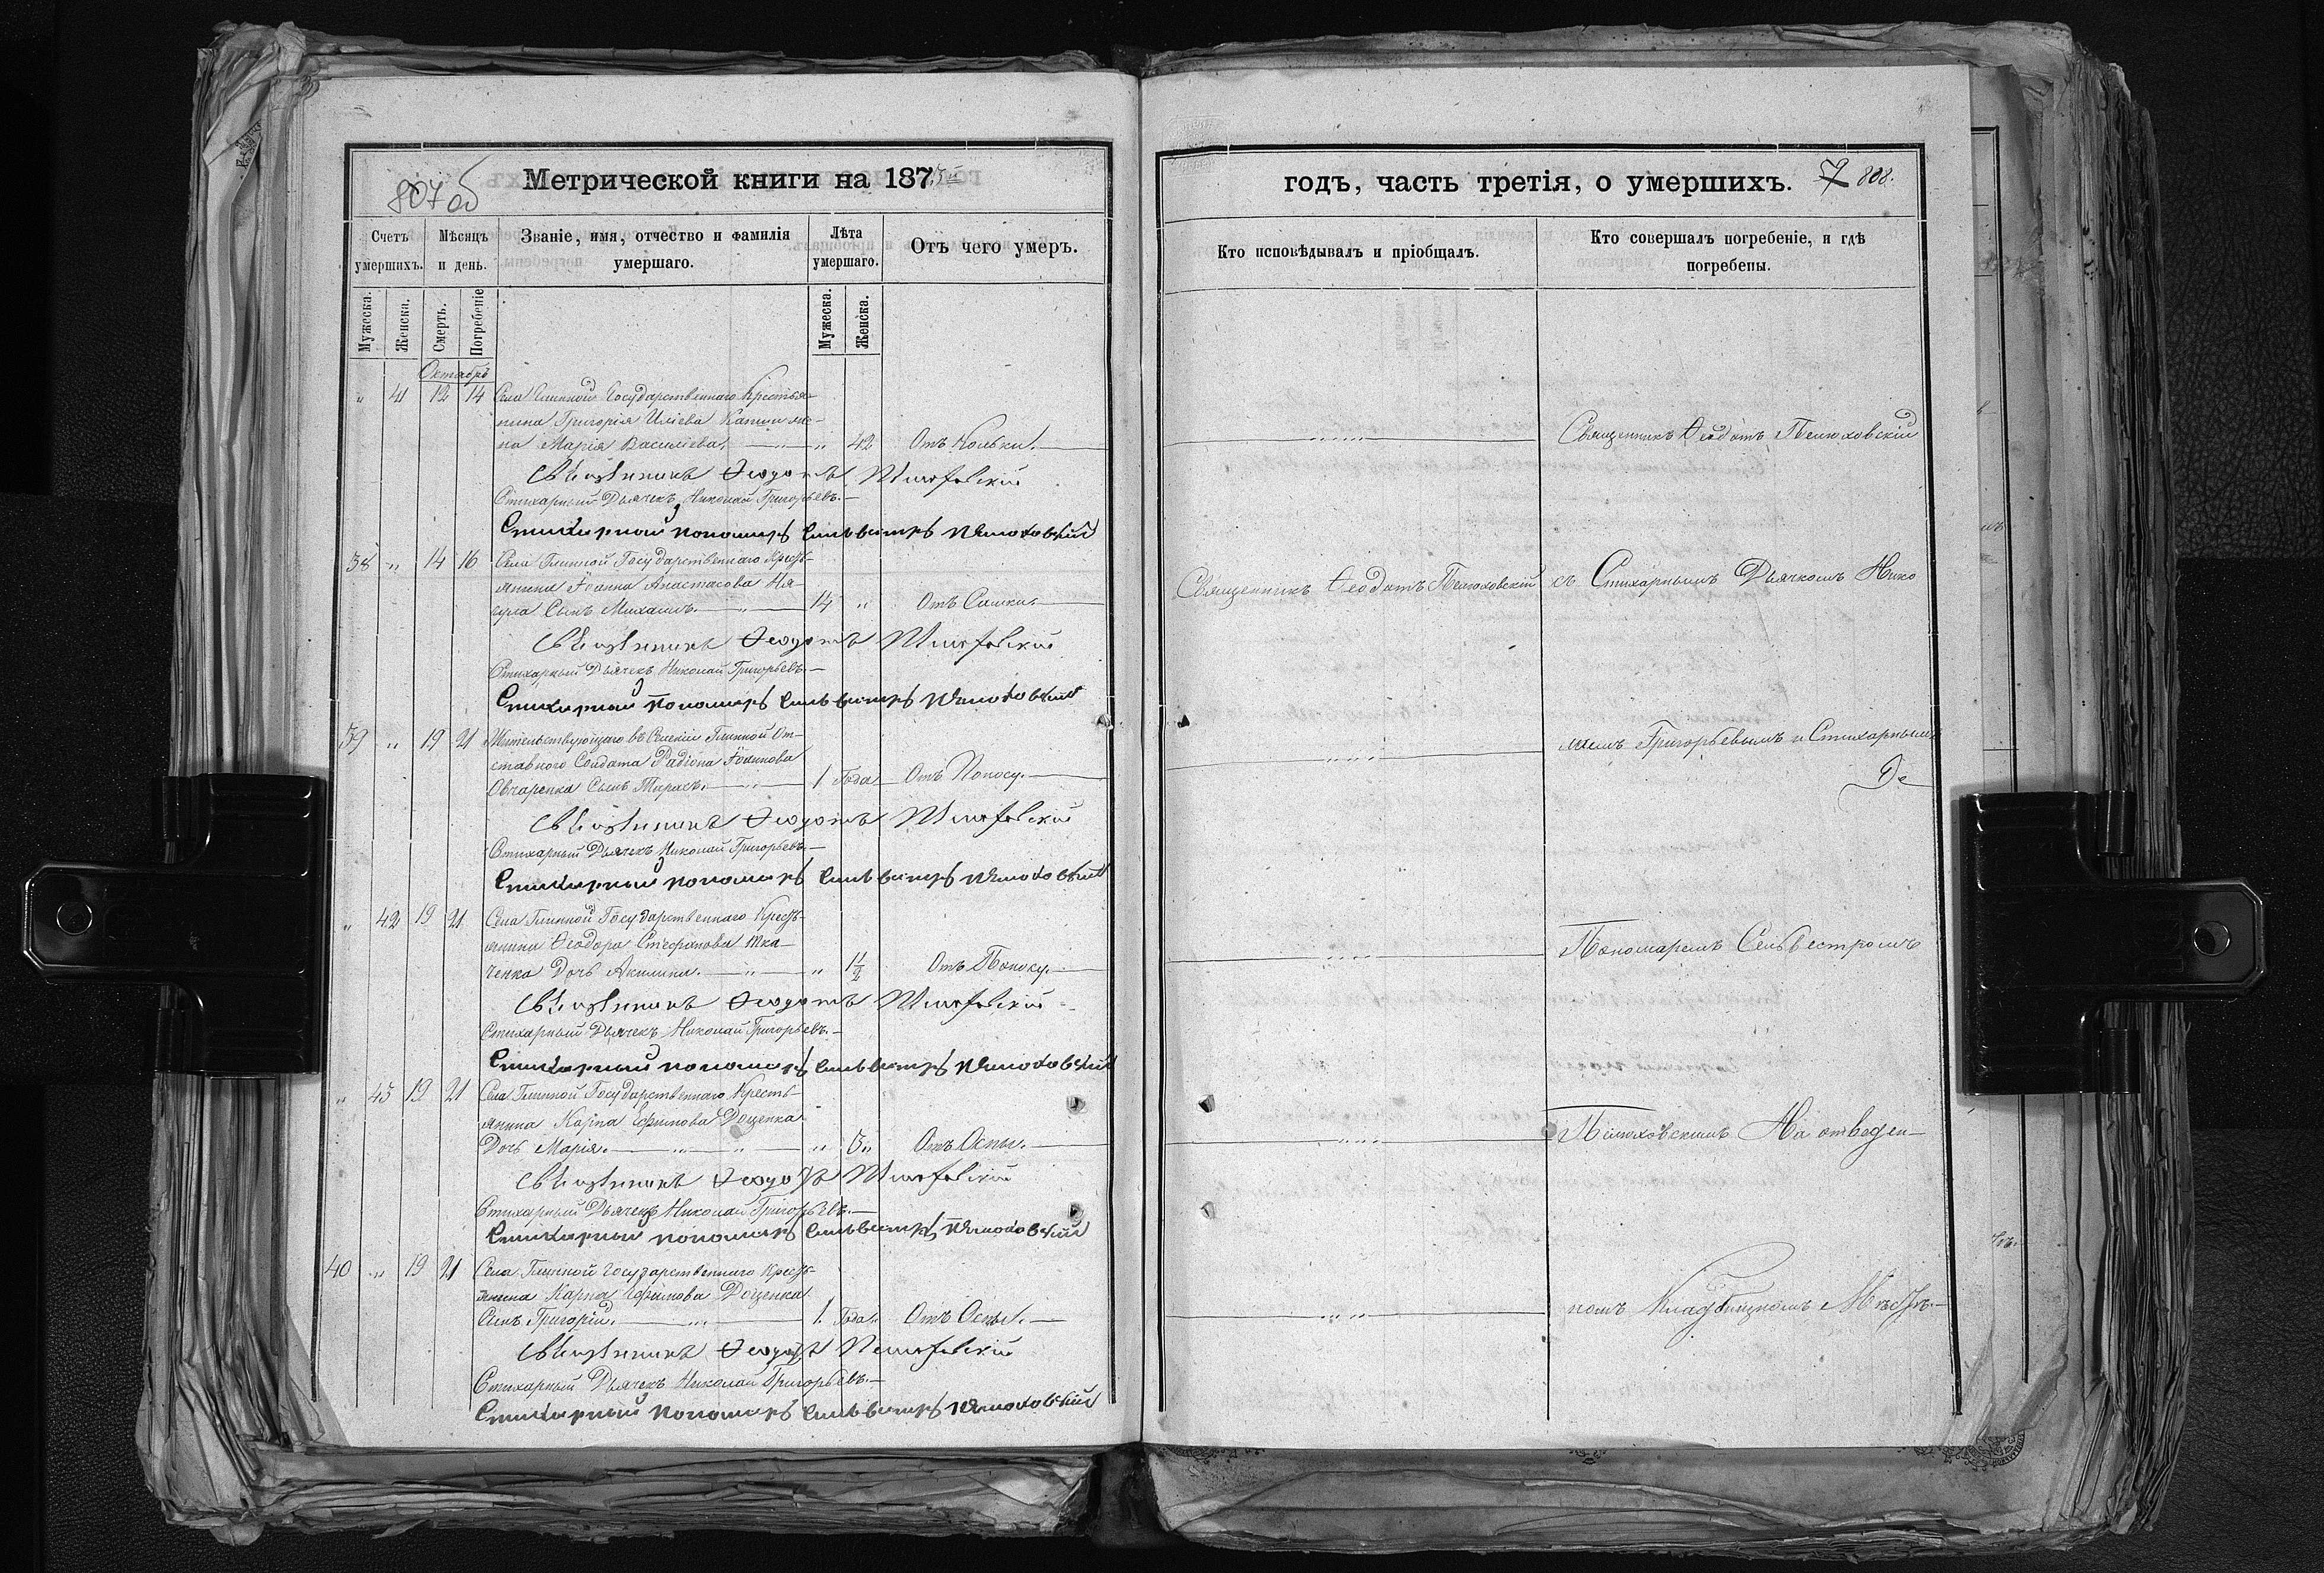 807 об
Метрической книги на 187
Счетъ умершихъ.
Мѣсяцъ и день.
Званіе, имя, отчество и фамилія умершаго.
Лѣта умершаго.
Отъ чего умеръ.
Мужеска.
Женска.
Смерть.
Погребеніе
Мужеска.
Женска.
Октябрь
" 41 12 14 Села Глинной Государственнаго Крестья-
нина Григорія Иліева
на Марія Василіева. " 42 Отъ Кольки.
Священникъ Ѳеодотъ
Стихарный Дьячекъ Николай Григорьевъ.
Стихарный пономарь Сильвестръ
38 " 14 16 Села Глинной Государственнаго Кресть-
янина Іоанна Анастасова Ня-
гула Сынъ Михаилъ. 14 " Отъ
Священникъ Ѳеодотъ
Стихарный Дьячекъ Николай Григорьевъ.
Стихарный пономарь Сильвестръ
39 " 19 21 Жительствующаго въ Селеніи Глинной От-
ставного Солдата Радіона
Овчаренка Сынъ Тарасъ. 1 Года Отъ Поносу.
Священникъ Ѳеодотъ
Стихарный Дьячекъ Николай Григорьевъ.
Стихарный пономарь Сильвестръ
" 42 19 21 Села Глинной Государственнаго Кресть-
янина Ѳеодора Стефанова Тка-
ченка Дочь Акилина. " Отъ Поносу.
Священникъ Ѳеодотъ
Стихарный Дьячекъ Николай Григорьевъ.
Стихарный пономарь Сильвестръ
" 43 19 21 Села Глинной Государственнаго Кресть-
янина Карпа Ефимова Доценка
Дочь Марія. " 3 " Отъ Оспы.
Священникъ Ѳеодотъ
Стихарный Дьячекъ Николай Григорьевъ.
Стихарный пономарь Сильвестръ
40 " 19 21 Села Глинной Государственнаго Кресть-
янина Карпа Ефимова Доценка
Сынъ Григорій. 1. Года. Отъ Оспы.
Священникъ Ѳеодотъ
Стихарный Дьячекъ Николай Григорьевъ.
Стихарный пономарь Сильвестръ
годъ, часть третія, о умершихъ.
808.
Кто исповѣдывалъ и пріобщалъ.
Кто совершалъ погребеніе, и гдѣ погребены.
Священникъ Ѳеодотъ
Священникъ Ѳеодотъ
съ Стихарнымъ Дьячкомъ Нико
лаемъ Григорьевымъ и Стихарнымъ
Пономаремъ Сельвестромъ
На отведен-
номъ Кладбищномъ Мѣстѣ.